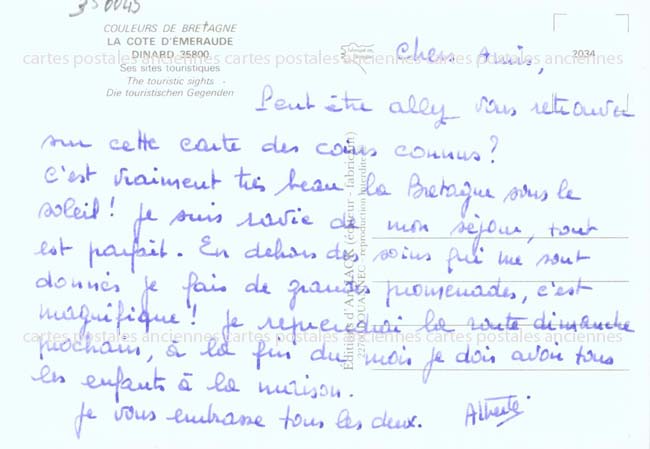 350045
COULEURS DE BRETAGNE
LA COTE D'ÉMERAUDE
DINARD 35800
Ses sites touristiques
The touristic sights -
Die touristischen Gegenden
2034
cartes postales anciennes cartes postales anciennes cartes postales anciennes
Chers Amis,
Peut être allez vous retrouver
sur cette carte des coins connus ?
C'est vraiment très beau la Bretagne sous le
soleil ! Je suis ravie de mon séjour, tout
est parfait. En dehors des soins qui me sont
donnés je fais de grandes promenades, c'est
magnifique ! Je reprendrai la route dimanche
cartes postales anciennes cartes postales anciennes cartes postales anciennes
prochain, à la fin du mois je dois avoir tous
les enfants à la maison.
Je vous embrasse tous les deux. Alberte
Editions d'ART JACK (éditeur - fabricant)
reproduction interdite